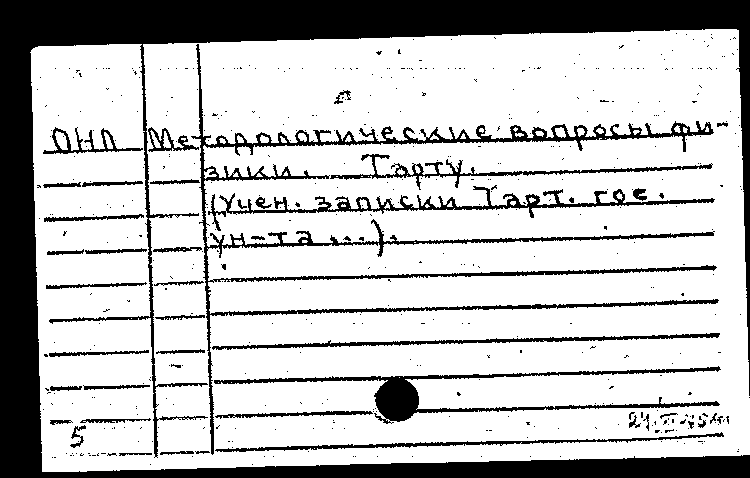 ОНЛ Методологические вопросы фи-
зики. Тарту.
(Учен. записки Тарт. гос.
ун-та ...).
5